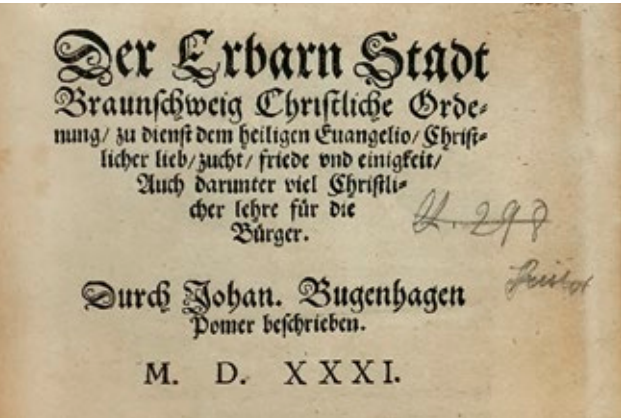 Der Erbarn Stadt
Braunschweig Christliche Orde-
nung/ zu dienst dem heiligen Euangelio/ Christ-
licher lieb/ zucht/ friede vnd einigkeit/
Auch darunter viel Christli-
cher lehre für die
Bürger.
298
Durch Johan. Bugenhagen
Pomer beschrieben.
M. D. XXXI.